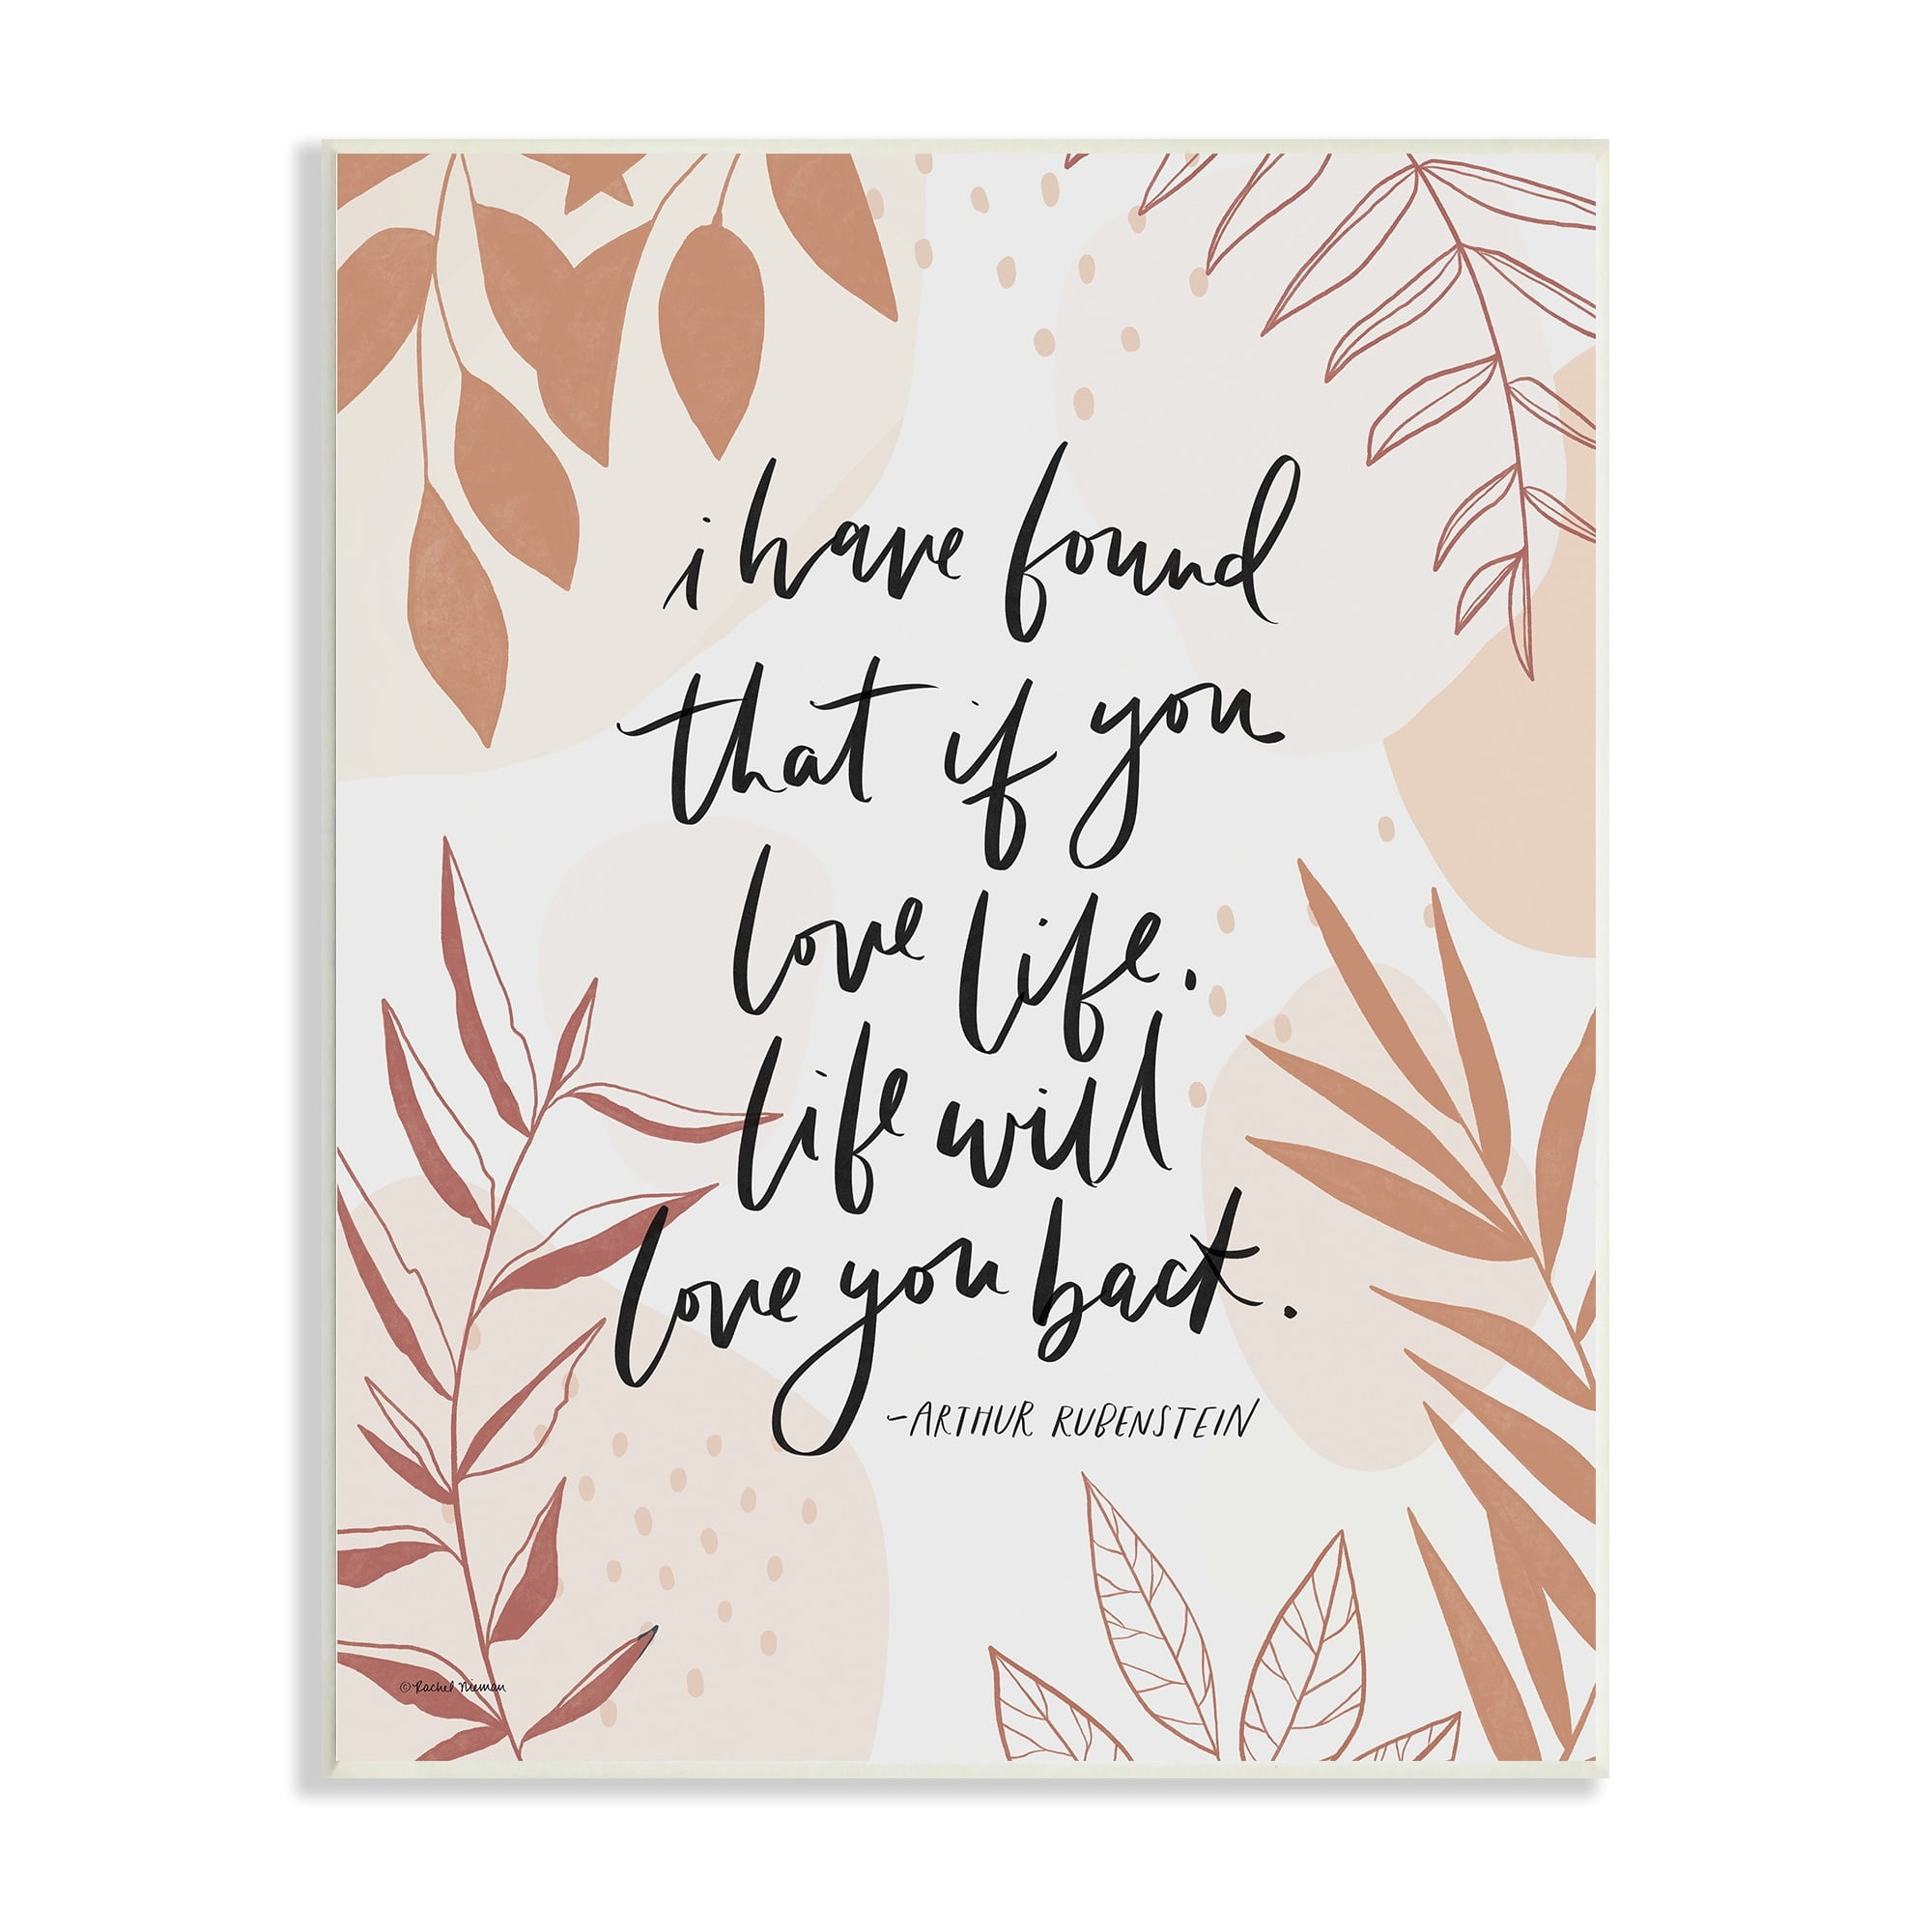 i have found
that if you
love life.
life will
love you back.
-ARTHUR RUBENSTEIN
© Rachel Nieman